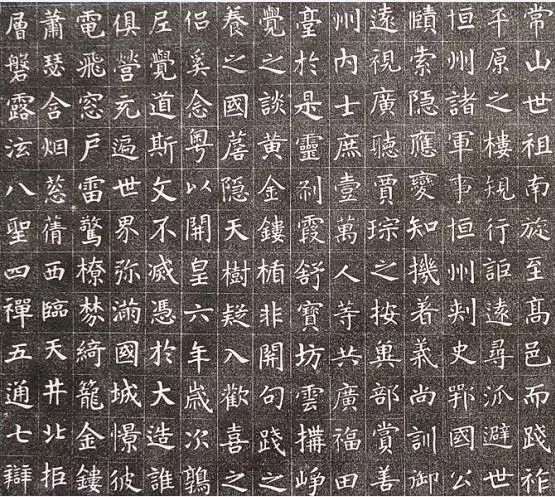 常山世祖南旋至髙邑而踐祚
平原之樓規行詎遠尋泒避世
恒州諸軍事恒州刾史鄂國公
賾索隐應變知機着義尚訓御
遠視廣聽賈琮之按輿部賞善
州內士庶壹萬人等共廣福田
臺於是靈刹霞舒寶坊雲構崢
覺之談黄金鏤楯非開句踐之
養之國隐天樹疑入歡喜之
侣奚念粤以開皇六年歲次鶉
居覺道斯文不滅憑於大造誰
俱營充遍世界弥滿國城憬彼
電飛窓户雷驚橑棼綺籠金鏤
蕭瑟含烟葱蒨西臨天井北拒
層磐露泫八聖四禪五通七辯